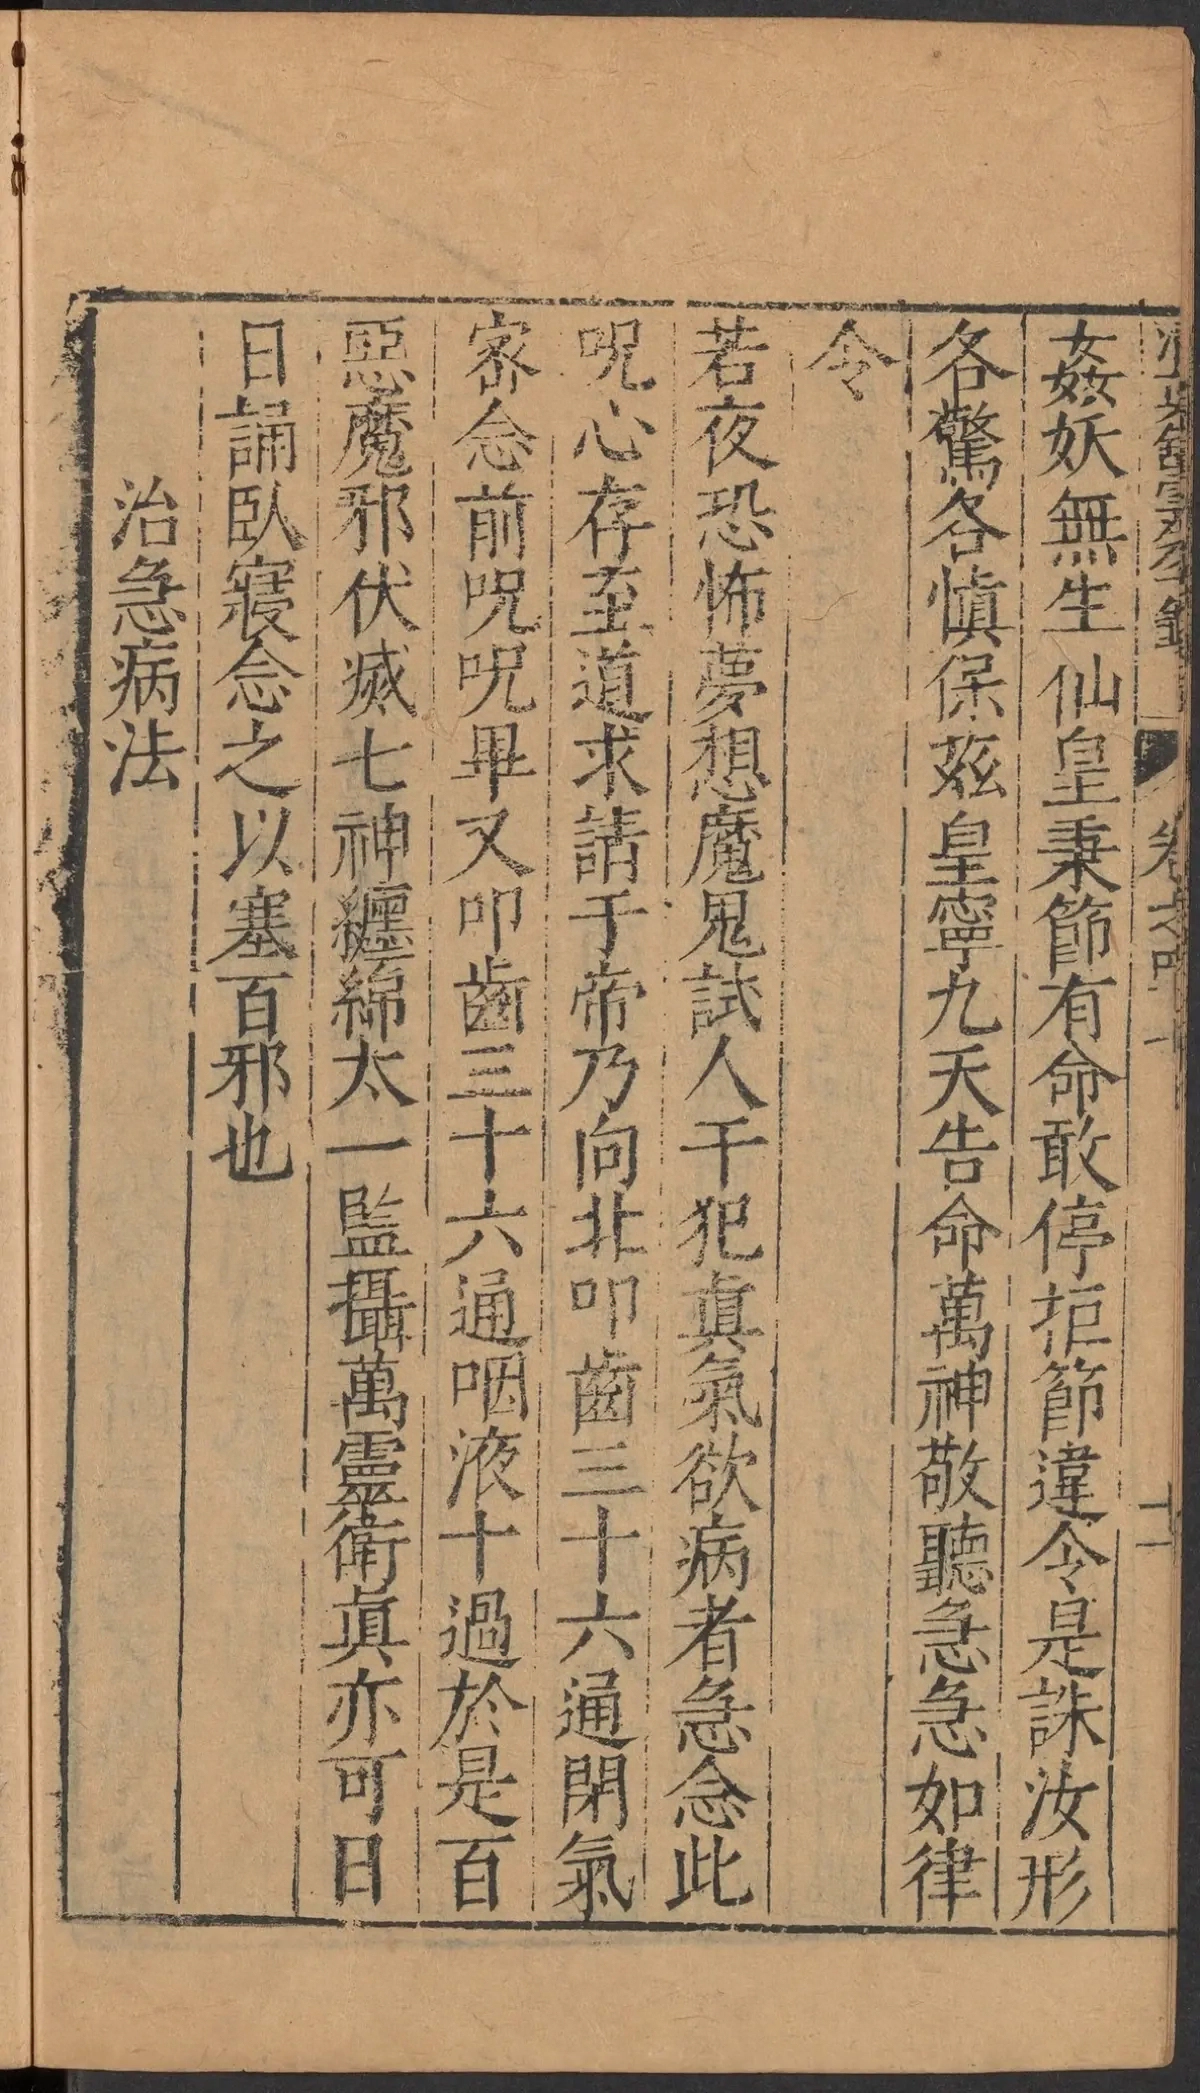 姦妖無生仙皇秉節有命敢停拒節違令是誅汝形
各驚各愼保兹皇寧九天告命萬神敬聽急急如律
令
若夜恐怖夢想魔鬼試人干犯眞氣欲病者急念此
呪心存至道求請于帝乃向北叩齒三十六通閉氣
密念前呪呪畢又叩齒三十六通咽液十過於是百
惡魔邪伏滅七神纏綿太一監攝萬靈衛眞亦可日
日誦臥寢念之以塞百邪也
治急病法